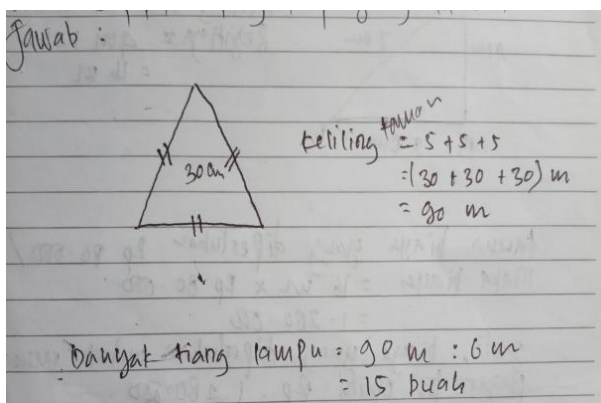 Jawab :
30 cm
keliling taman = s + s + s
= (30 + 30 + 30) m
= 90 m
Banyak tiang lampu = 90 m : 6 m
= 15 buah